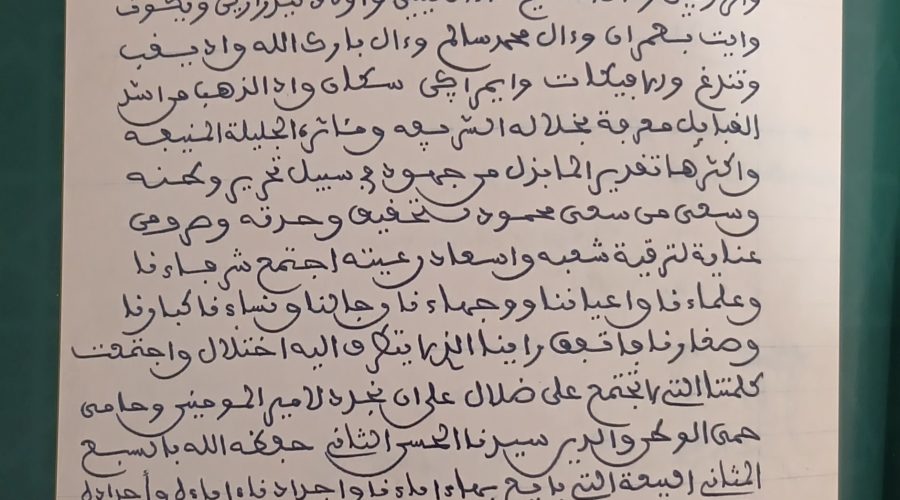 وايت بعمران وءال محمد سالم وءال بارك الله واد يعقب
وتندغ وفيكات وايمراكن سكان واد الذهب من اشد
القبايل معرفة بخلاله الشريفه ومئاثره الجليلة المنيعه
واكثرها تقديرا لما بذل من جهود في سبيل تحرير وطنه
وسعى من سعى محمود لتحقيق وحدته وصرف من
عناية لترقية شعبه واسعاد رعيته اجتمع شرفاءنا
وعلماءنا واعياننا ووجهاءنا ورجالنا ونساءنا كبارنا
وصغارنا فاتفق راينا الذي لا يتطرق اليه اختلال واجتمعت
كلمتنا التي لا تجتمع على ضلال على ان نجدد لامير المومنين وحامى
حمى الوطن والدين سيدنا الحسن الثاني حفظه الله بالسبع
المثانى البيعة التي بايع بها ءاباءنا واجدادنا ءاباءه وأجداده